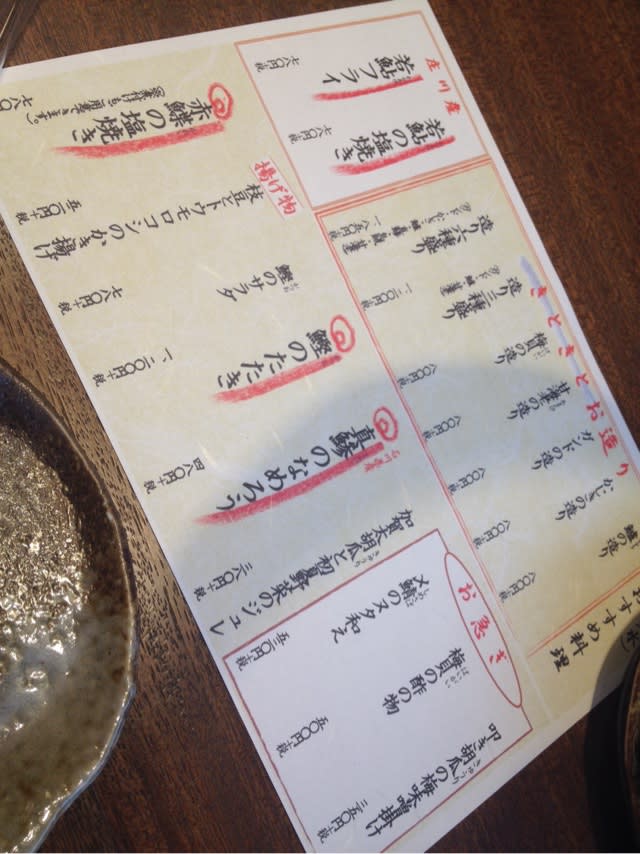 おすすめ料理
きときとお造り
鱸の造り
八〇〇円+税
かじきの造り
八〇〇円+税
ガンドの造り
八〇〇円+税
の造り
八〇〇円+税
梅貝の造り
造り三種盛り
一、二〇〇円+税
造り六種盛り
庄川産
若鮎の塩焼き
七八〇円+税
若鮎フライ
七八〇円+税
お急ぎ
叩き胡瓜の梅味噌掛け
三五〇円+税
梅貝の酢の物
五〇〇円+税
〆鯖のヌタ和え
五五〇円+税
加賀太胡瓜と初夏野菜のジュレ
三八〇円+税
真鯵のなめろう
四八〇円+税
鰹のたたき
一、二〇〇円+税
鰹のサラダ
七八〇円+税
揚げ物
枝豆とトウモロコシのかき揚げ
五五〇円+税
赤鰈の塩焼き